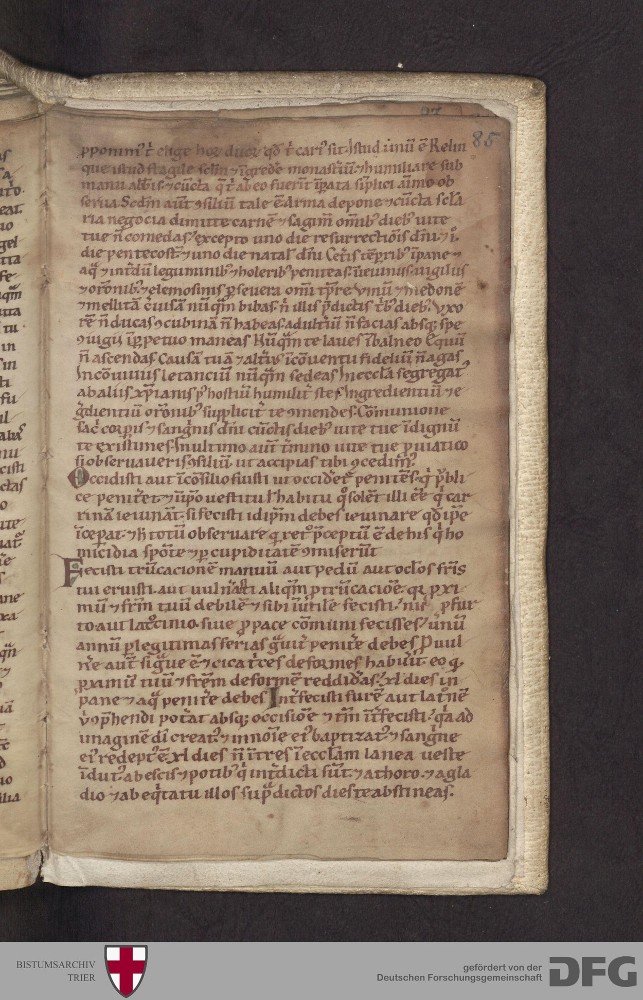 85
pponim' t̄ elige hor̄ duor̄ qđ t̄ cari' sit. Istud unū ē Relin
que istud fragile sc̄lm ⁊ īgrede monasteriū ⁊ humiliare sub
manu abbīs ⁊ cuncta q̄ t̄ ab eo fuerīt īpata siplici aīmo ob
serua. Scđm aūt ꝯsiliū tale ē. Arma depone ⁊ cuncta scl̄a
ria negocia dimitte carnē ⁊ sagim̄ omīb' dieb' uite
tue n̄ comedas excepto uno die resurrectiōis dn̄i ⁊ ī
die pentecost̄ ⁊ uno die natal' dn̄i Cet̄is tēprib' īpane ⁊
aq̄ ⁊ int̄dū leguminib' ⁊ holerib' peniteas. ieiuniis uigiliis
⁊ orōnib' ⁊ elemosinis pseuera om̄i tp̄re Vinū ⁊ medonē
⁊ mellitā c̄uisā nūq̄m bibas. n̄ illis p̄dictis t̄b' dieb'. Vxo
rē n̄ ducas ꝯcubinā n̄ habeas adult̄iū n̄ facias absq; spe
ꝯiugii īppetuo maneas Nūq̄m te laues ībalneo Equū
n̄ ascendas Causā tuā ⁊ alt̄ius īcōuentu fideliū n̄ agas
Incōuiuiis letanciū nūq̄m sedeas In eccl̄a segregat'
ab aliis xp̄ianis p' hostiū humilit̄ stes Ingredientiū ⁊ e
ḡdientiū orōnib' supplicit̄ te ꝯmendes. Cōmunione
sac̄ corpis ⁊ sanḡnis dn̄i cūctis dieb' uite tue īdignū
te existimes. In ultimo aūt t̄mino uite tue p uiatico
si obseruaueris ꝯsiliū ut accipias tibi ꝯcedim'.
Occidisti aut īcōsilio fuisti ut occiderēt penitētē q̄ pbli
ce penit̄et ⁊ īipo uestitu ł habitu q̄ solēt illi ēē q̄ car
rinā ieiunāt. si fecisti idipm̄ debes ieiunare qđ ipē
īcepat ⁊ h̄ totū obseruare q̄ ret̄ p̄ceptū ē de his q̄ ho
micidia spōte ⁊ p cupiditatē ꝯmiserūt
Fecisti trūcacionē manuū aut pedū aut oc̄los fr̄is
tui eruisti. aut uulnasti aliq̄m p trūcaciōe. q̄ pxi
mū ⁊ fr̄m tuū debilē ⁊ sibi īutilē fecisti. nisi p fur
to aut lat̄ocinio. siue p pace cōmuni fecisses unū
annū p legitimas ferias ḡuit̄ penit̄e debes P uul
n̄e aut̄ si ḡue ē ⁊ cicat̄ces deformes habuit̄. eo q̄
pximū tuū ⁊ fr̄em deformē reddidas. xl dies in
pane ⁊ aq̄ penit̄e debes Int̄fecisti furē aut lat̄onē
ubi p̄hendi pot̄at absq; occisiōe ⁊ tm̄ īt̄fecisti. q̄a ad
imaginē dī creat' ⁊ innoīe ei' baptizat' ⁊ sanḡne
ei' redept' ē. xl dies n̄ īt̄res ī eccl̄am lanea ueste
īdut'. ab escis ⁊ potib' q̄ int̄dicti sūt ⁊ a thoro. ⁊ a gla
dio ⁊ ab eq̄tatu illos sup̄dictos dies te abstineas.
BISTUMSARCHIV
TRIER
gefördert von der
Deutschen Forschungsgemeinschaft
DFG